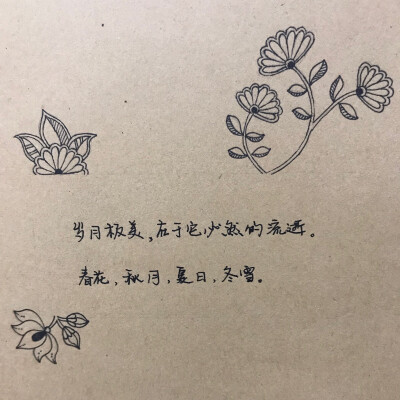 岁月极美，在于它必然的流逝。
春花，秋月，夏日，冬雪。